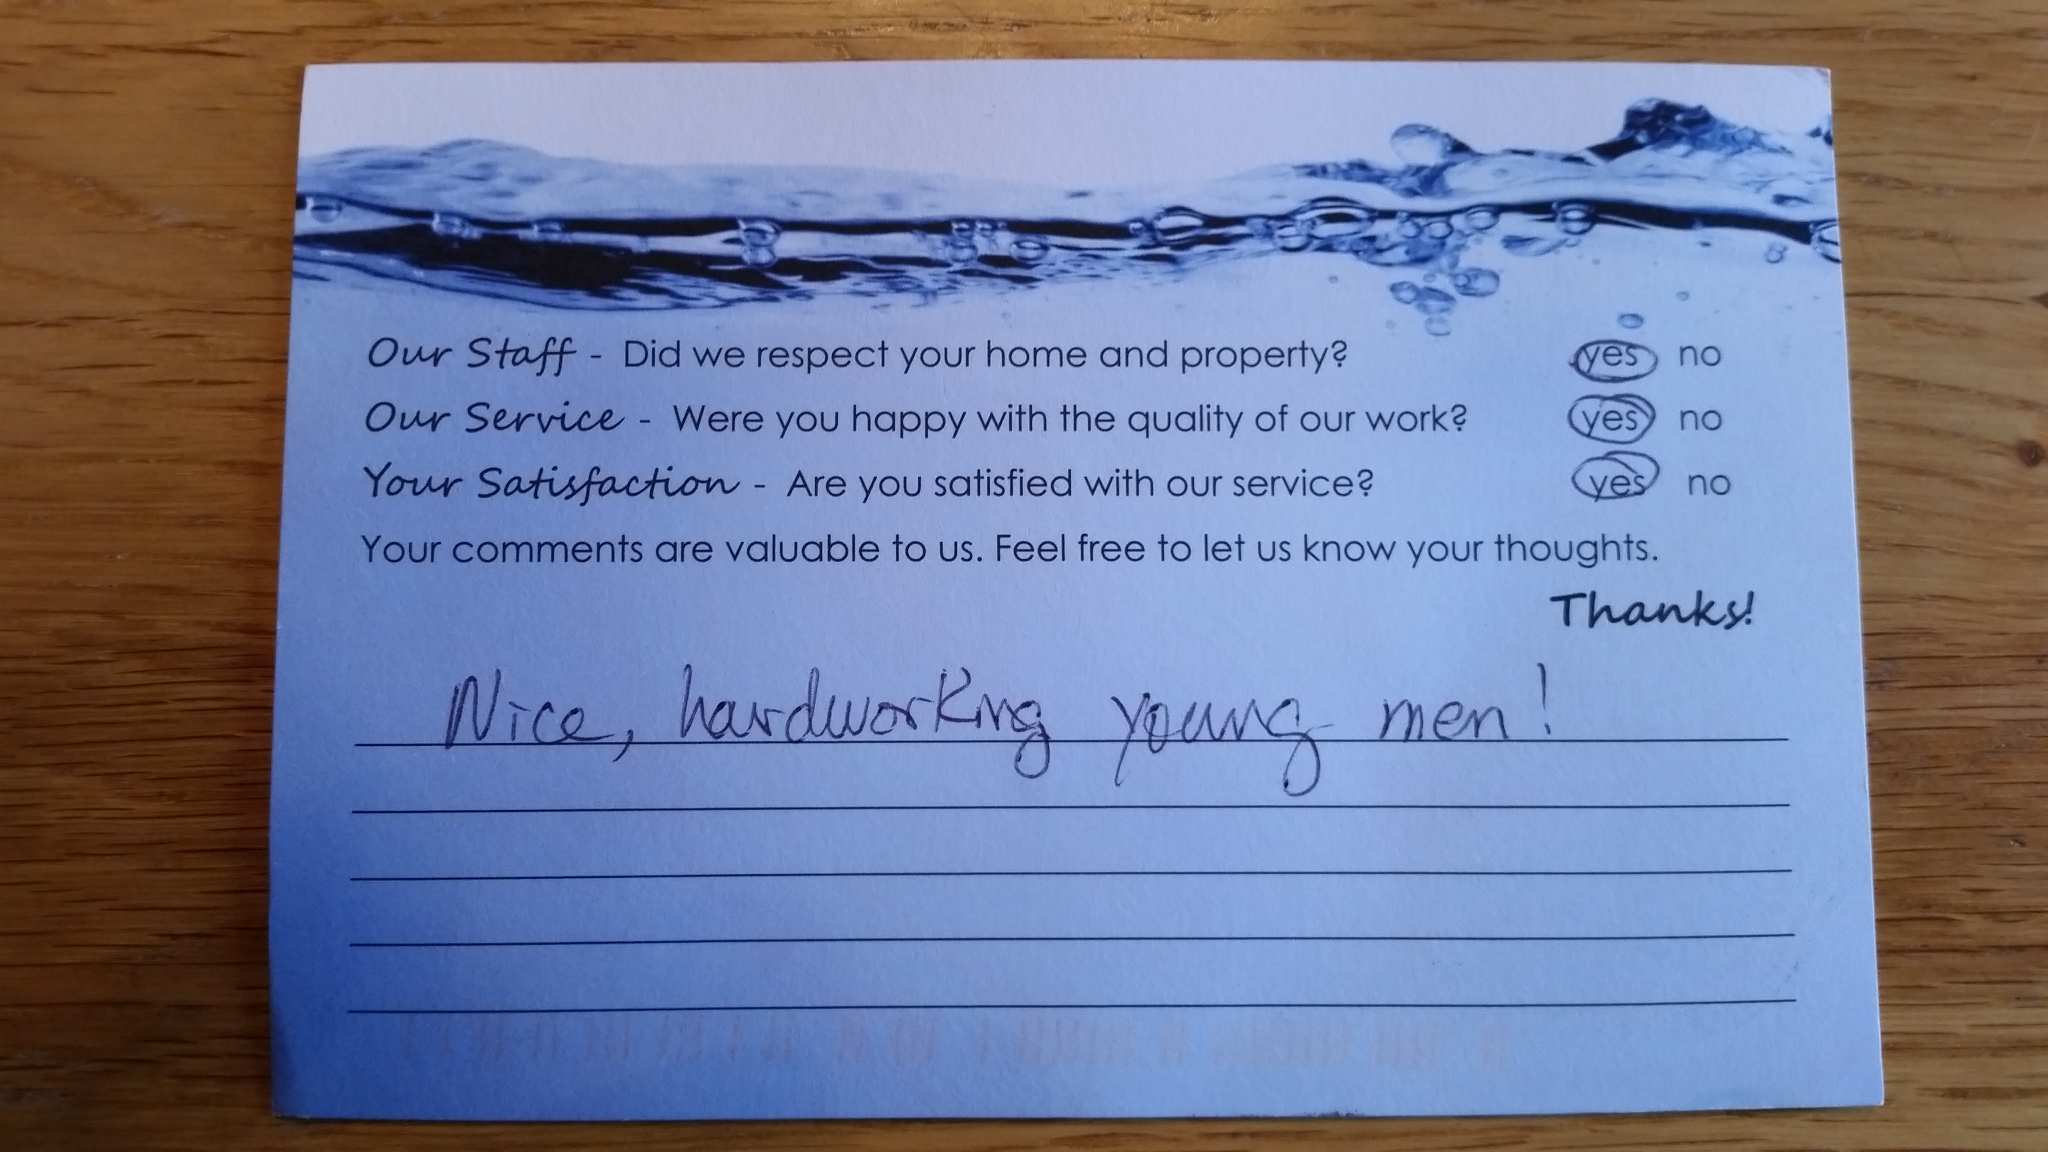 Our Staff - Did we respect your home and property? yes no
Our Service - Were you happy with the quality of our work? yes no
Your Satisfaction - Are you satisfied with our service? yes no
Your comments are valuable to us. Feel free to let us know your thoughts.
Thanks!
Nice, hardworking young men!